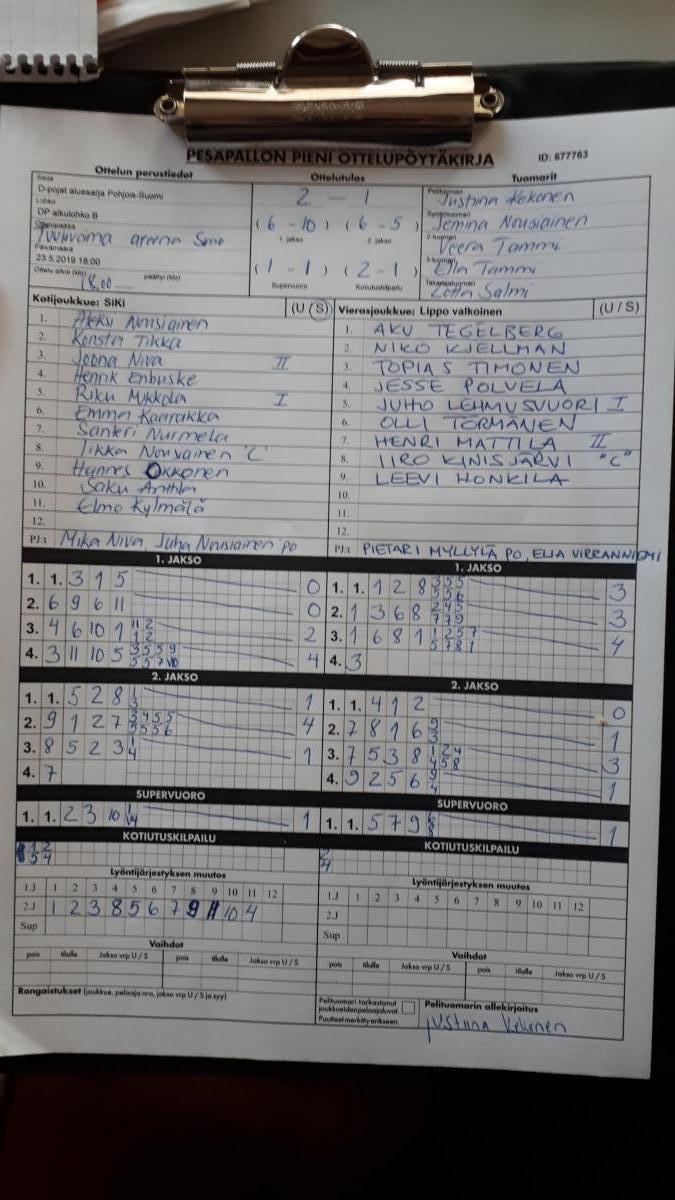 PESÄPALLON PIENI OTTELUPÖYTÄKIRJA
ID: 677763
Ottelun perustiedot
Sarja
D-pojat aluesarja Pohjois-Suomi
Lohko
DP alkulohko B
Ottelupaikka
Tuukvoima areena Smo
Päivämäärä
23.5.2019 18:00
Ottelu alkoi (klo) 18.00 päättyi (klo)
Ottelutulos
2 - 1
(6 - 10) (6 - 5)
1. jakso 2. jakso
(1 - 1) (2 - 1)
Supervuoro Kotiutuskilpailu
Tuomarit
Pelituomari
Justiina Kekonen
Syöttötuomari
Jemina Nousiainen
2-tuomari
Veera Tammi
3-tuomari
Ella Tammi
Takarajatuomari
Lotta Salmi
Kotijoukkue: SiKi (U / S)
1. Aleksi Nousiainen
2. Konsta Tikka
3. Joona Niva II
4. Henrik Enbuske
5. Riku Mukkala I
6. Emma Kaarakka
7. Santeri Nurmela
8. Iikka Nousiainen "C"
9. Hannes Okkonen
10. Saku Anttila
11. Elmo Kylmälä
12.
PJ:t Mika Niva, Juha Nousiainen po
Vierasjoukkue: Lippo valkoinen (U / S)
1. AKU TEGELBERG
2. NIKO KJELLMAN
3. TOPIAS TIMONEN
4. JESSE POLVELA
5. JUHO LEHMUSVUORI I
6. OLLI TÖRMÄNEN
7. HENRI MATTILA II
8. IIRO KINISJÄRVI "C"
9. LEEVI HONKILA
10.
11.
12.
PJ:t PIETARI MYLLYLÄ PO, ELIA VIRRANNIEMI
1. JAKSO
1. 1. 3 1 5 0
2. 6 9 6 11 0
3. 4 6 10 1 11 2 1 2 2
4. 3 11 10 5 3 5 5 9 5 5 7 10 4
2. JAKSO
1. 1. 5 2 8 1 3 1
2. 9 1 2 7 3 4 5 5 3 5 5 6 4
3. 8 5 2 3 1 4 1
4. 7
SUPERVUORO
1. 1. 2 3 10 1 4 1
KOTIUTUSKILPAILU
1 2
5 4
1. JAKSO
1. 1. 1 2 8 3 5 5 5 5 6 3
2. 1 3 6 8 2 4 5 7 7 9 3
3. 1 6 8 1 1 2 5 7 5 7 8 1 4
4. 3
2. JAKSO
1. 1. 4 1 2 0
2. 7 8 1 6 9 3 1
3. 7 5 3 8 1 2 4 4 5 8 3
4. 9 2 5 6 9 4 1
SUPERVUORO
1. 1. 5 7 9 6 8 1
KOTIUTUSKILPAILU
Lyöntijärjestyksen muutos
1.J 1 2 3 4 5 6 7 8 9 10 11 12
2.J 1 2 3 8 5 6 7 9 11 10 4
Sup
Vaihdot
pois tilalle Jakso vrp U / S pois tilalle Jakso vrp U / S
Rangaistukset (joukkue, pelaaja nro, jakso vrp U / S ja syy)
Lyöntijärjestyksen muutos
1.J 1 2 3 4 5 6 7 8 9 10 11 12
2.J
Sup
Vaihdot
pois tilalle Jakso vrp U / S pois tilalle Jakso vrp U / S
Pelituomari tarkastanut
joukkueiden pelaajaluvat.
Puutteet merkitty erikseen.
Pelituomarin allekirjoitus
Justiina Kekonen